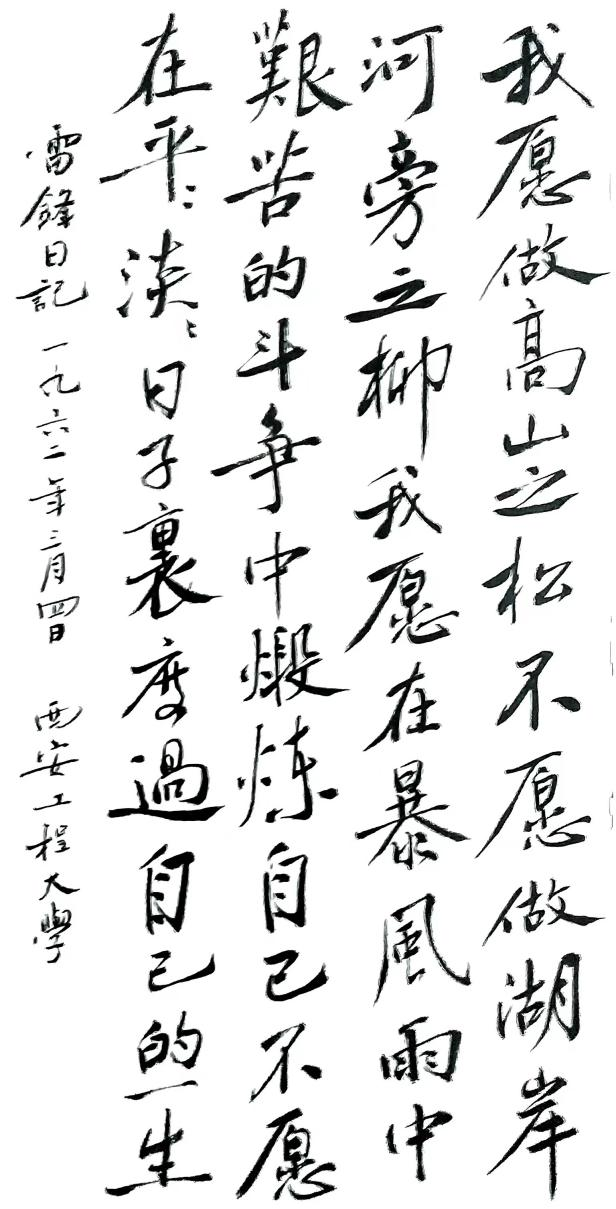 我愿做高山之松不愿做湖岸
河旁之柳我愿在暴風雨中
艱苦的斗爭中煅炼自己不愿
在平〻淡〻日子裏度過自己的一生
雷鋒日記一九六二年三月四日 西安工程大學